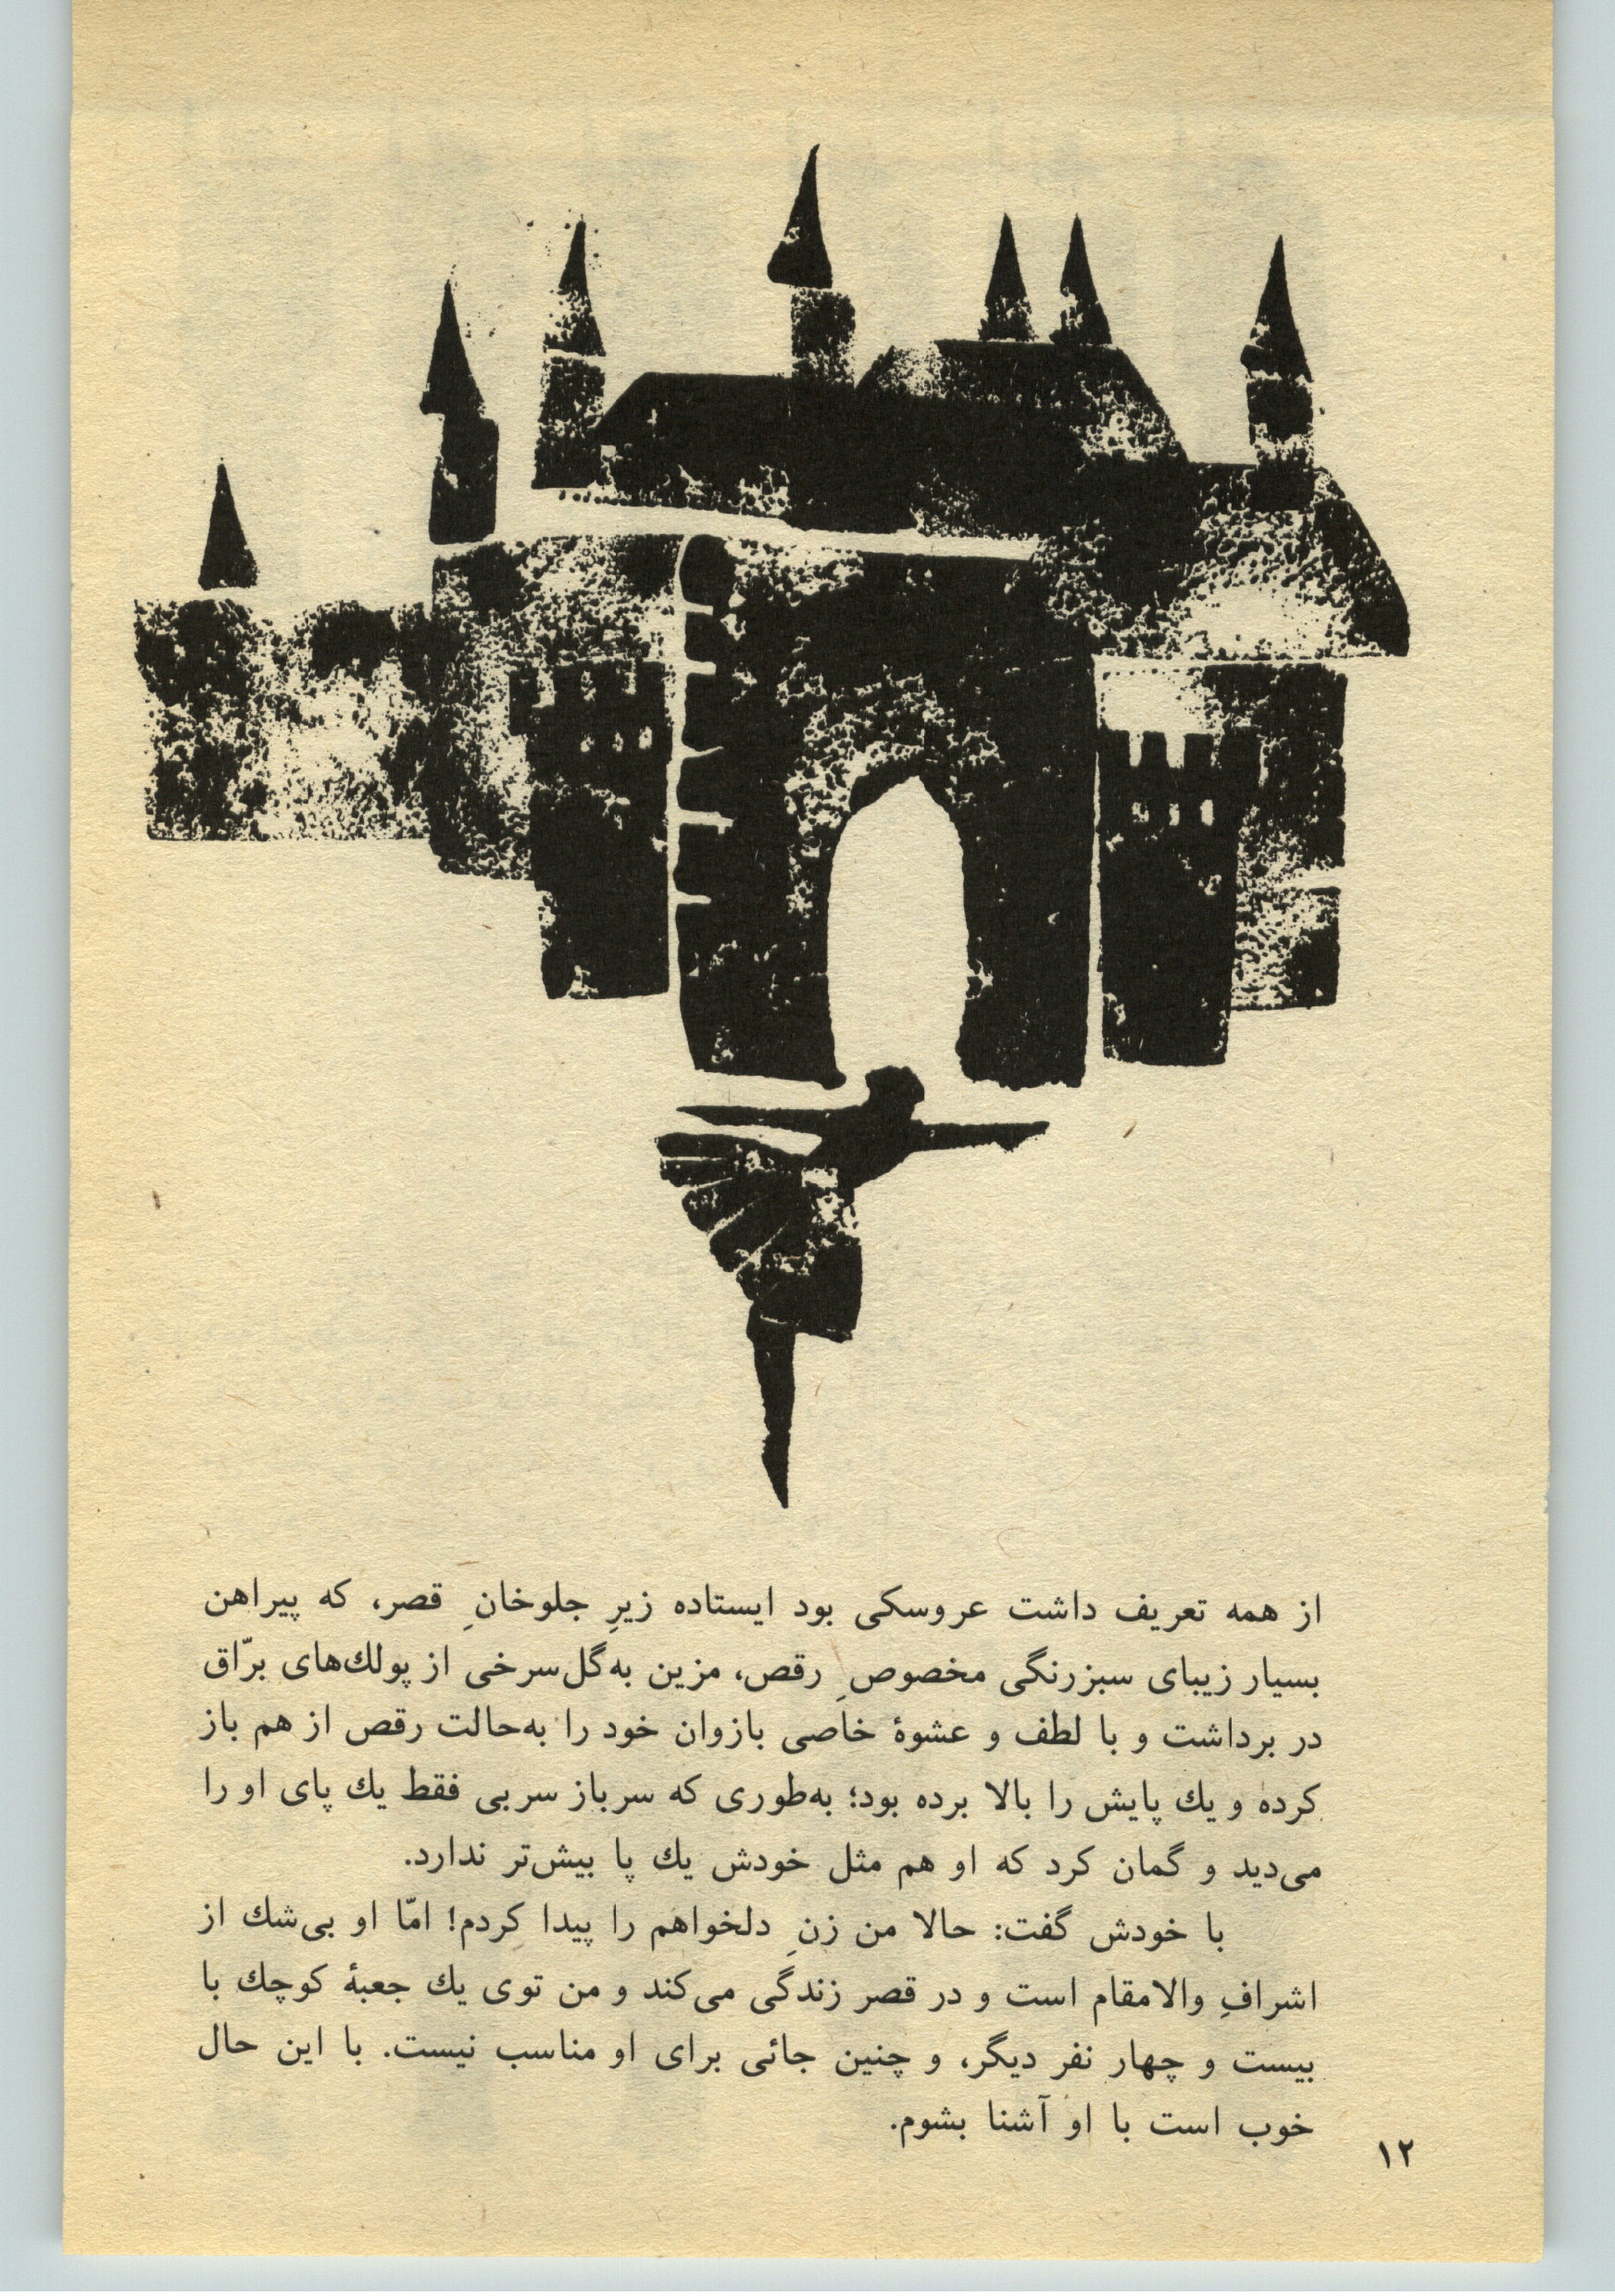 از همه تعریف داشت عروسکی بود ایستاده زیرِ جلوخانِ قصر، که پیراهن
بسیار زیبای سبزرنگی مخصوصِ رقص، مزین به‌گل‌سرخی از پولك‌های برّاق
در برداشت و با لطف و عشوهٔ خاصی بازوان خود را به‌حالت رقص از هم باز
کرده و یك پایش را بالا برده بود؛ به‌طوری که سرباز سربی فقط یك پای او را
می‌دید و گمان کرد که او هم مثل خودش یك پا بیش‌تر ندارد.
با خودش گفت: حالا من زنِ دلخواهم را پیدا کردم! امّا او بی‌شك از
اشرافِ والامقام است و در قصر زندگی می‌کند و من توی یك جعبهٔ کوچك با
بیست و چهار نفر دیگر، و چنین جائی برای او مناسب نیست. با این حال
خوب است با او آشنا بشوم.
۱۲